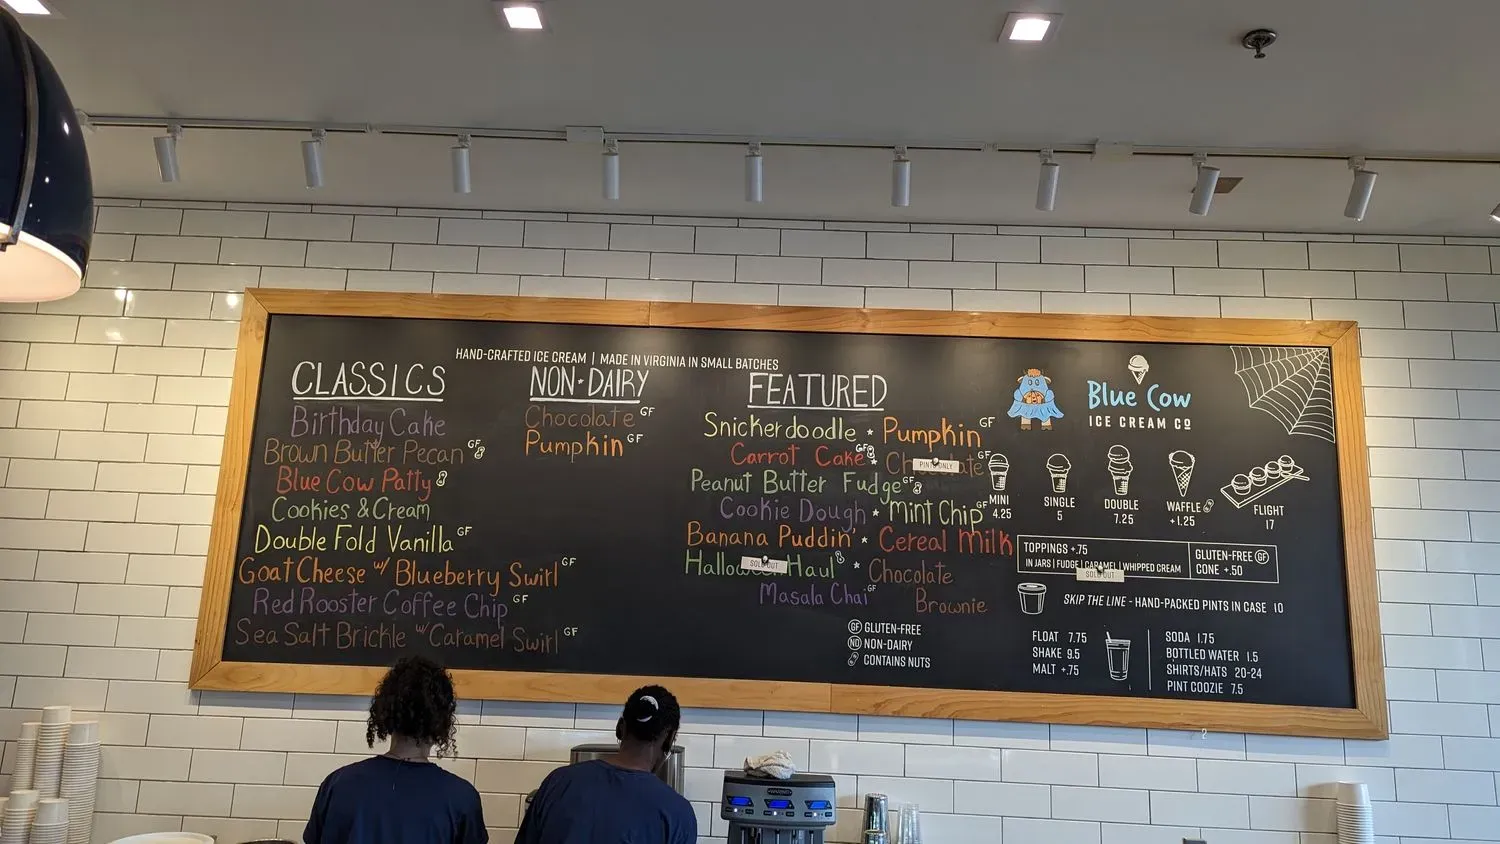 HAND-CRAFTED ICE CREAM | MADE IN VIRGINIA IN SMALL BATCHES
CLASSICS
Birthday Cake
Brown Butter Pecan GF
Blue Cow Patty
Cookies & Cream
Double Fold Vanilla GF
Goat Cheese w/ Blueberry Swirl GF
Red Rooster Coffee Chip GF
Sea Salt Brickle w/ Caramel Swirl GF
NON-DAIRY
Chocolate GF
Pumpkin GF
FEATURED
Snickerdoodle * Pumpkin GF
Carrot Cake GF * Chocolate GF
PINTS ONLY
Peanut Butter Fudge GF
Cookie Dough * Mint Chip GF
Banana Puddin' * Cereal Milk
Halloween Haul * Chocolate
SOLD OUT
Masala Chai GF Brownie
GF GLUTEN-FREE
ND NON-DAIRY
CONTAINS NUTS
Blue Cow
ICE CREAM CO
MINI
4.25
SINGLE
5
DOUBLE
7.25
WAFFLE
+1.25
FLIGHT
17
TOPPINGS +.75
IN JARS | FUDGE | CARAMEL | WHIPPED CREAM
SOLD OUT
GLUTEN-FREE GF
CONE +.50
SKIP THE LINE - HAND-PACKED PINTS IN CASE 10
FLOAT 7.75
SHAKE 9.5
MALT +.75
SODA 1.75
BOTTLED WATER 1.5
SHIRTS/HATS 20-24
PINT COOZIE 7.5